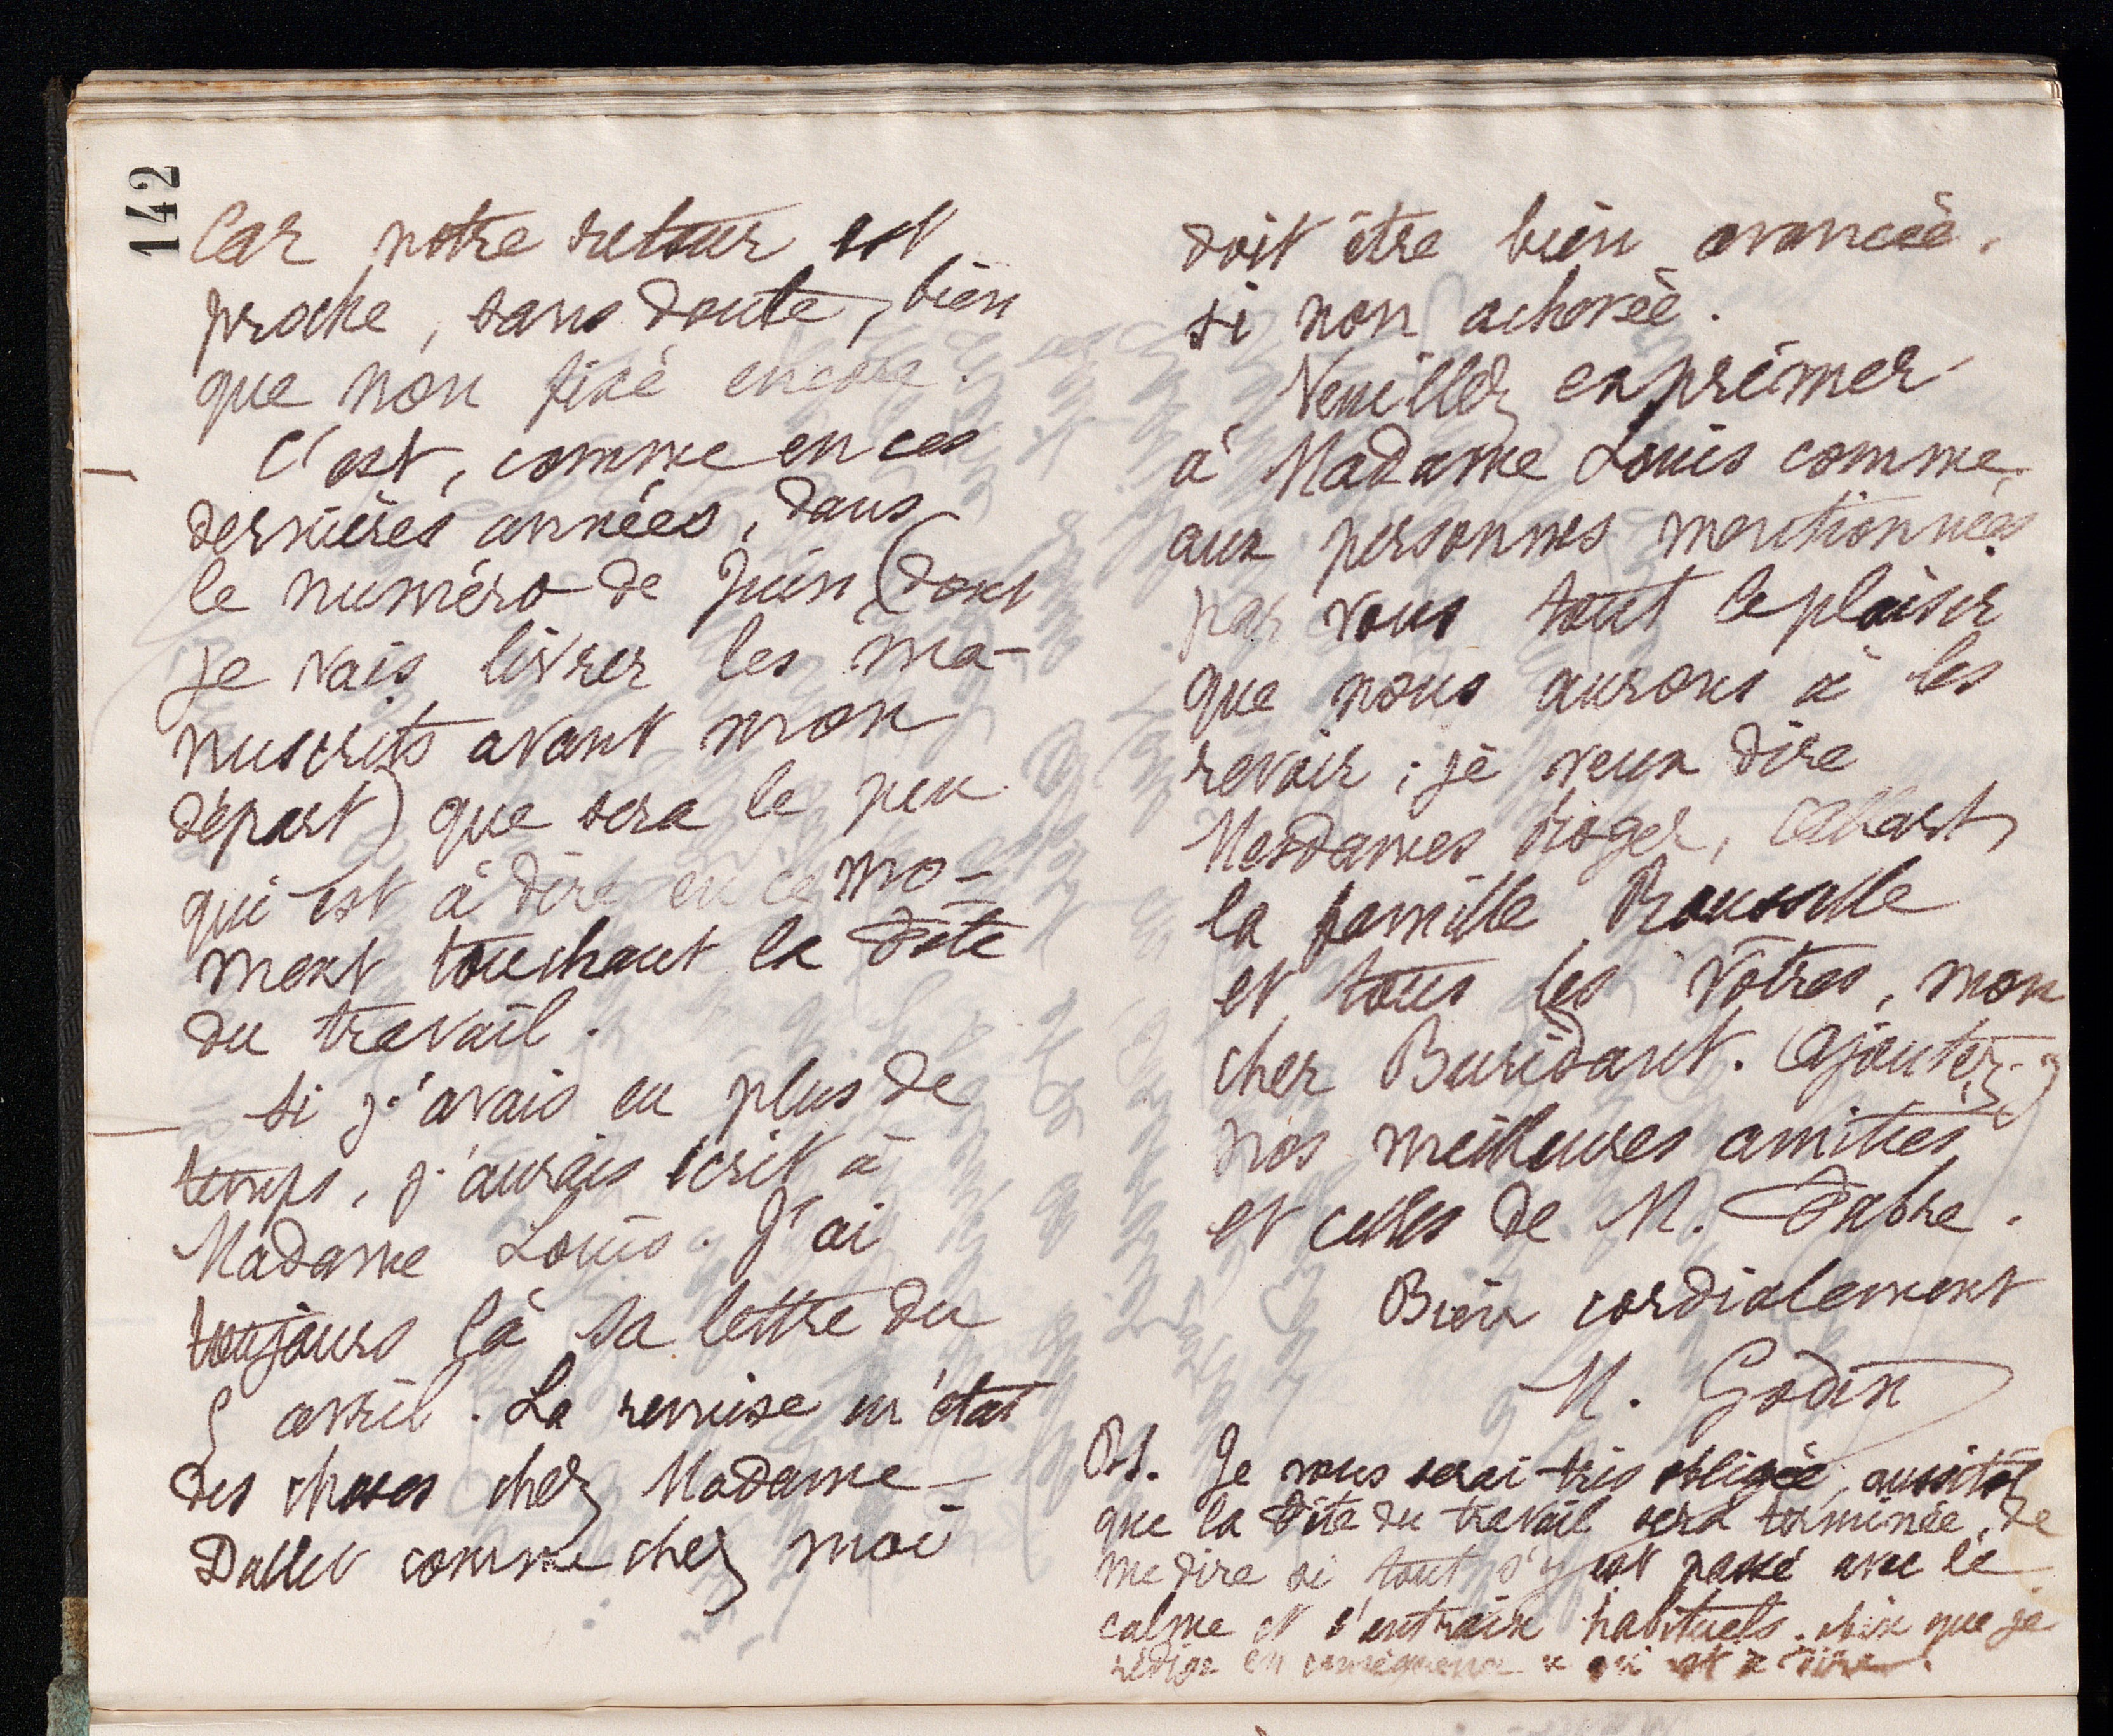 142
Car notre retour est
proche, sans doute, bien
que non fixé encore.
C'est, comme en ces
dernières années, dans
le numéro de Juin (dont
je vais livrer les ma-
nuscrits avant mon
départ) que sera le peu
qui est à dire en ce mo-
ment touchant la Fête
du travail.
Si j'avais eu plus de
temps, j'aurais écrit à
Madame Louis. J'ai
toujours là sa lettre du
5 avril. La remise en état
des choses chez Madame
Dallet comme chez moi
doit être bien avancée.
si non achevée.
Veuillez exprimer
à Madame Louis comme
aux personnes mentionnées
par vous tout le plaisir
que nous aurons à les
revoir ; je veux dire
Mesdames Roger, Allart,
la famille Rousselle
et tous les vôtres, mon
cher Buridant. Ajoutez-y
nos meilleures amitiés
et celles de M. Fabre.
Bien cordialement
M. Godin
PS. Je vous serai très obligée, aussitôt
que la Fête du travail sera terminée, de
me dire si tout s'y est passé avec le
calme et l'entrain habituels. afin que je
rédige en conséquence ce qui est à dire.